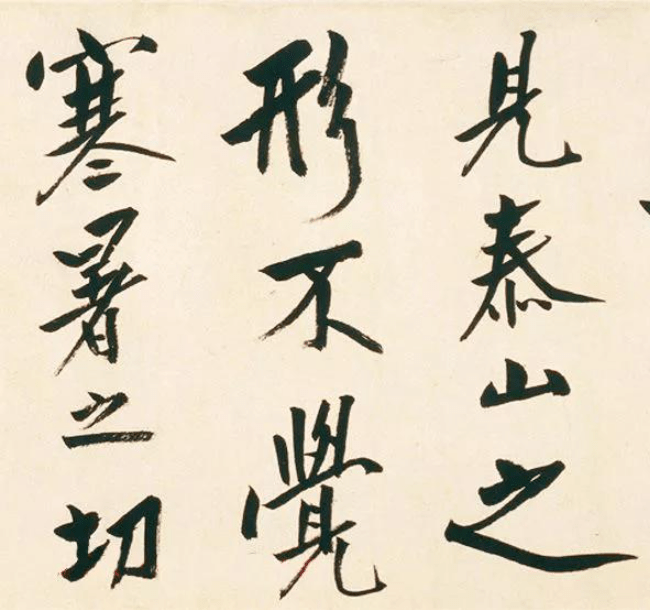 見泰山之
形不覺
寒暑之切